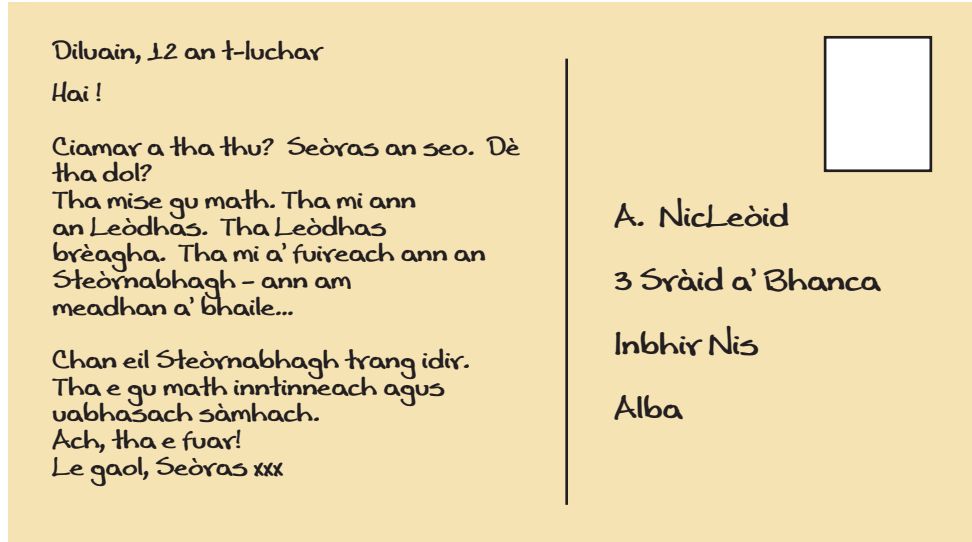 Diluain, 12 an t-Iuchar
Hai !
Ciamar a tha thu? Seòras an seo. Dè
tha dol?
Tha mise gu math. Tha mi ann
an Leòdhas. Tha Leòdhas
brèagha. Tha mi a' fuireach ann an
Steòrnabhagh - ann am
meadhan a' bhaile...
Chan eil Steòrnabhagh trang idir.
Tha e gu math inntinneach agus
uabhasach sàmhach.
Ach, tha e fuar!
Le gaol, Seòras xxx
A. NicLeòid
3 Sràid a' Bhanca
Inbhir Nis
Alba